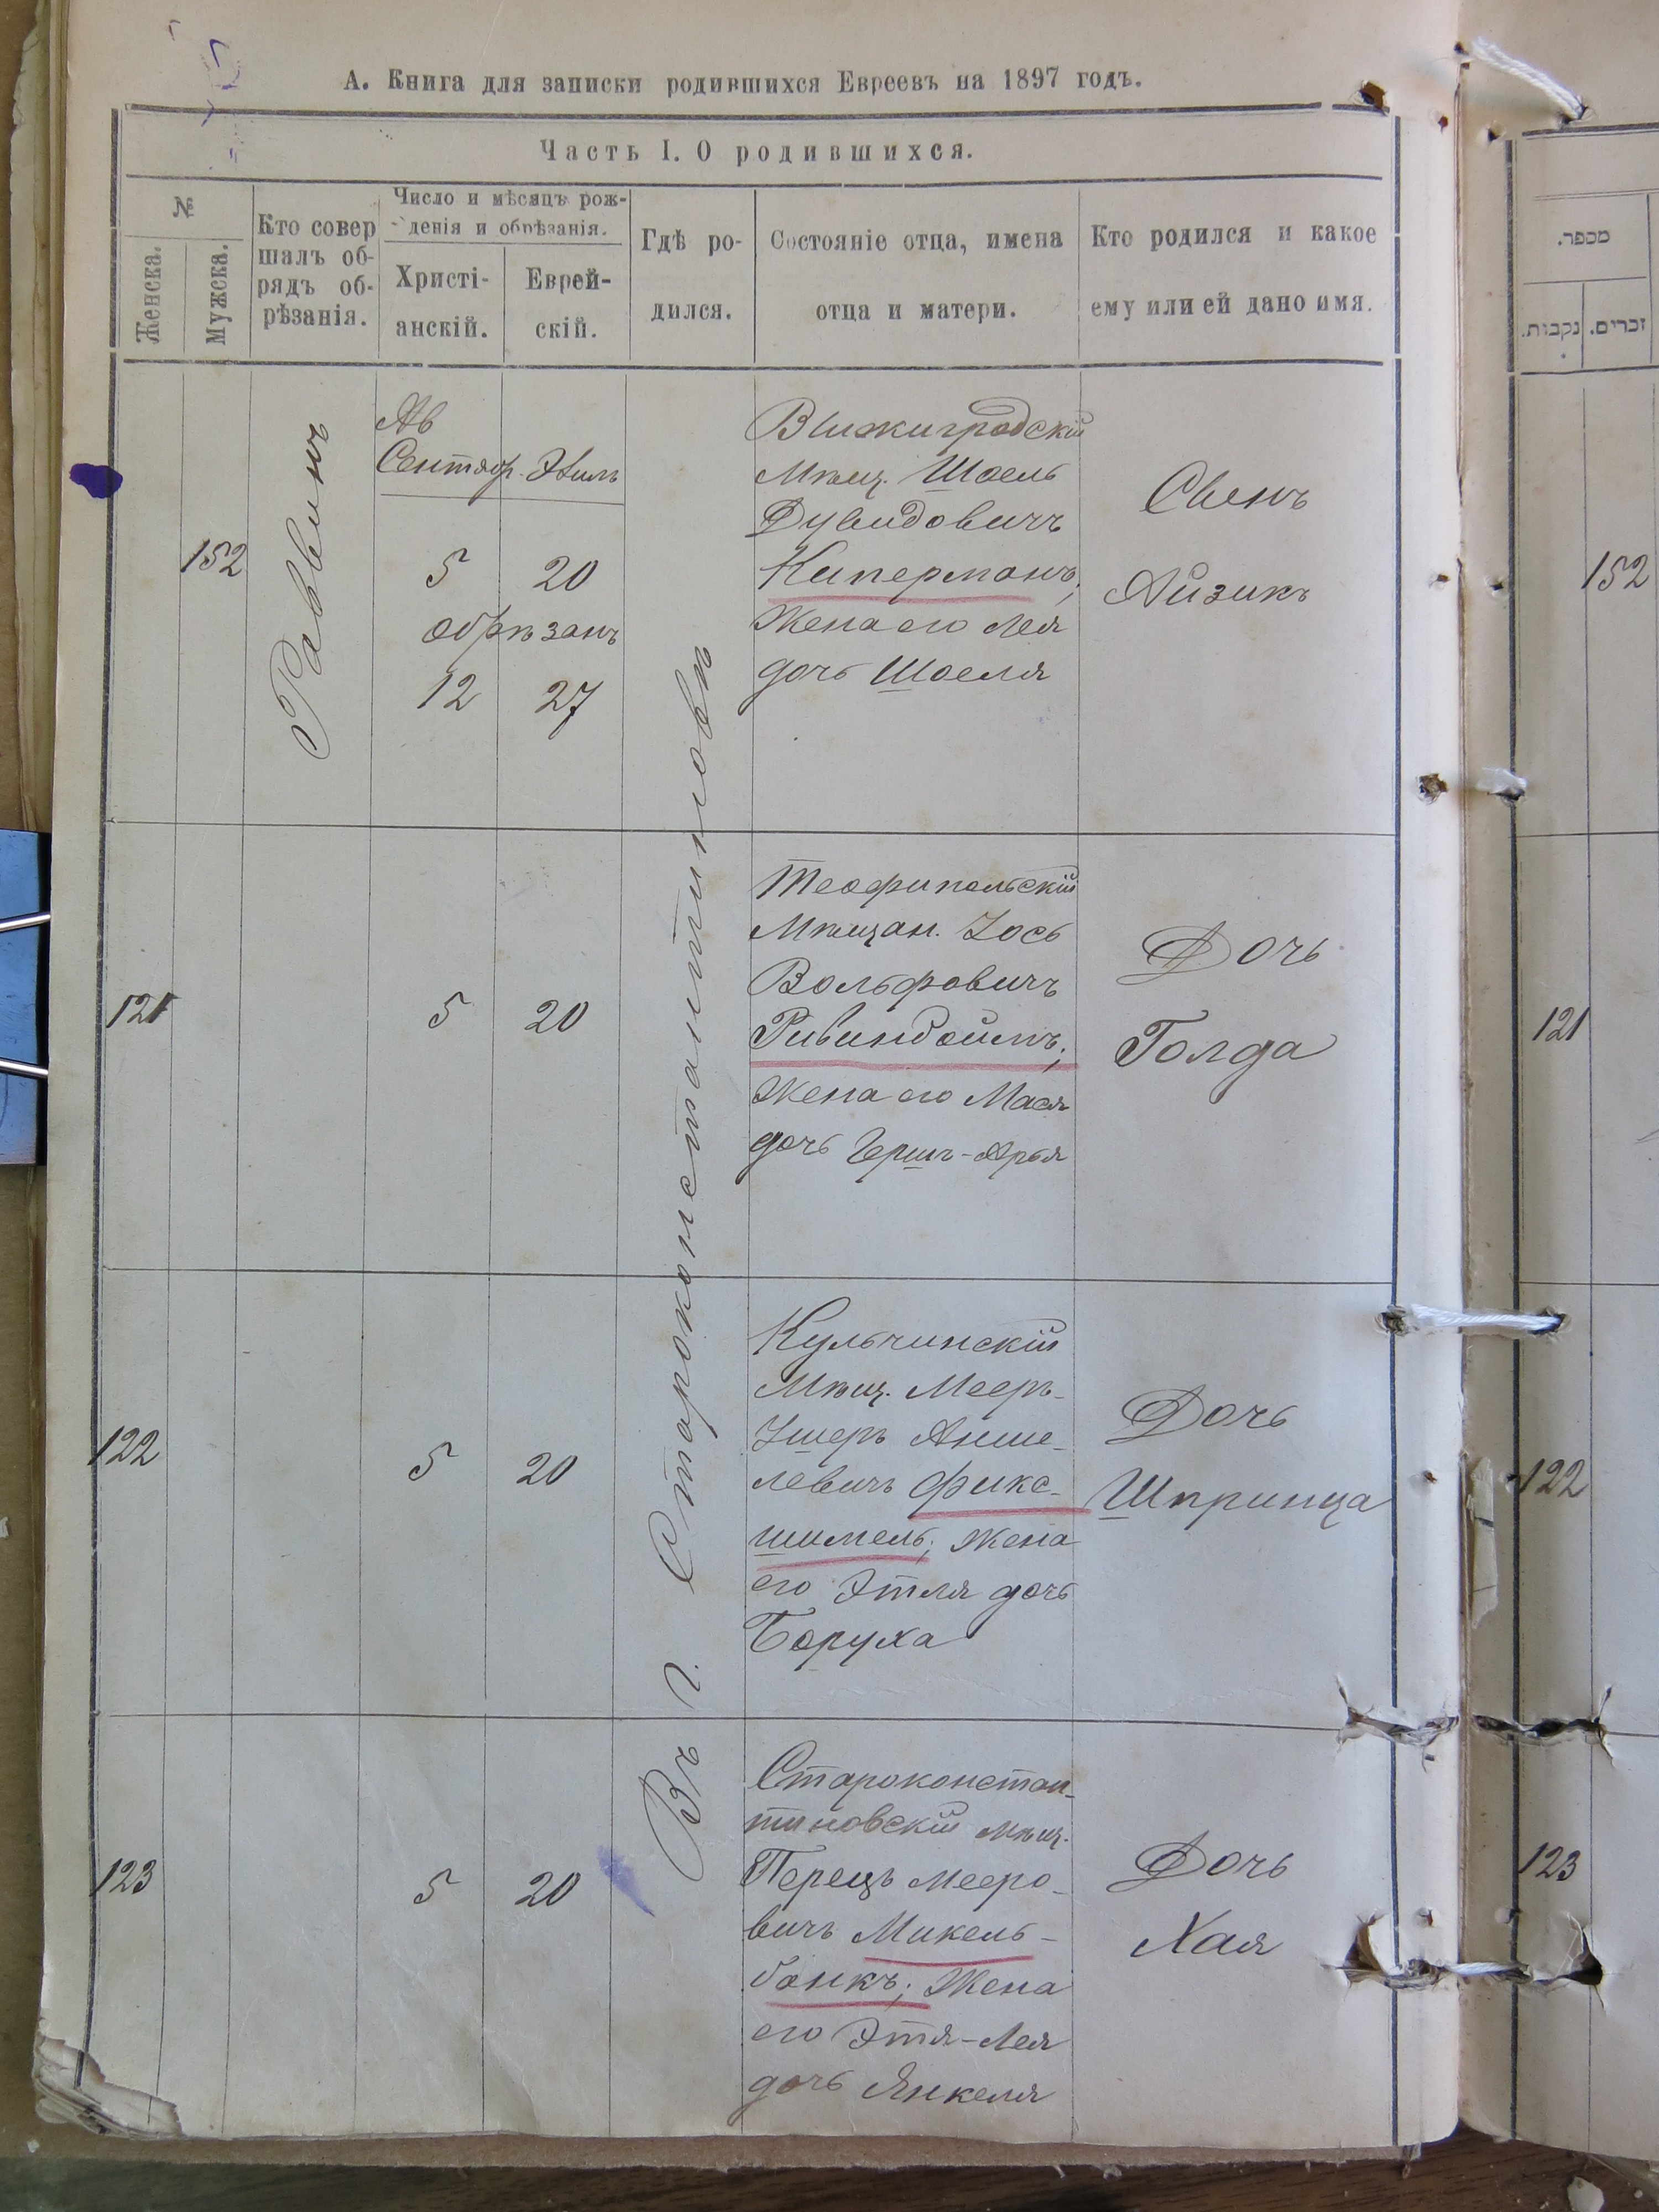 А. Книга для записки родившихся Евреевъ на 1897 годъ.
Часть I. О родившихся.
№
Женска.
Мужска.
Кто совер
шалъ об-
рядъ об-
рѣзанія.
Число и мѣсяцъ рож-
денія и обрѣзанія.
Христі-
анскій.
Еврей-
скій.
Гдѣ ро-
дился.
Состояніе отца, имена
отца и матери.
Кто родился и какое
ему или ей дано имя.
מספר.
נקבות.
זכרים.
152
Раввинъ
Ав
Сентябр. Элилъ
5 20
обрѣзанъ
12 27
Въ г. Староконстантиновѣ
Вышгородскій
Мѣщ. Шоель
Дувидовичъ
Киперманъ;
Жена его Лея
дочь Шоеля
Сынъ
Айзикъ
152
121
5 20
Теофипольскій
Мѣщан. Іось
Вольфовичъ
Ривиндоимъ;
Жена его Мася
дочь Гершъ-Арья
Дочь
Голда
121
122
5 20
Кульчинскій
Мѣщ. Мееръ-
Ушеръ Анше-
левичъ Фикс-
шимель; Жена
его Этля дочь
Боруха
Дочь
Шпринца
122
123
5 20
Староконстан-
тиновскій мѣщ.
Перецъ Мееро-
вичъ Микель-
банкъ; Жена
его Этя-Лея
дочь Янкеля
Дочь
Хая
123